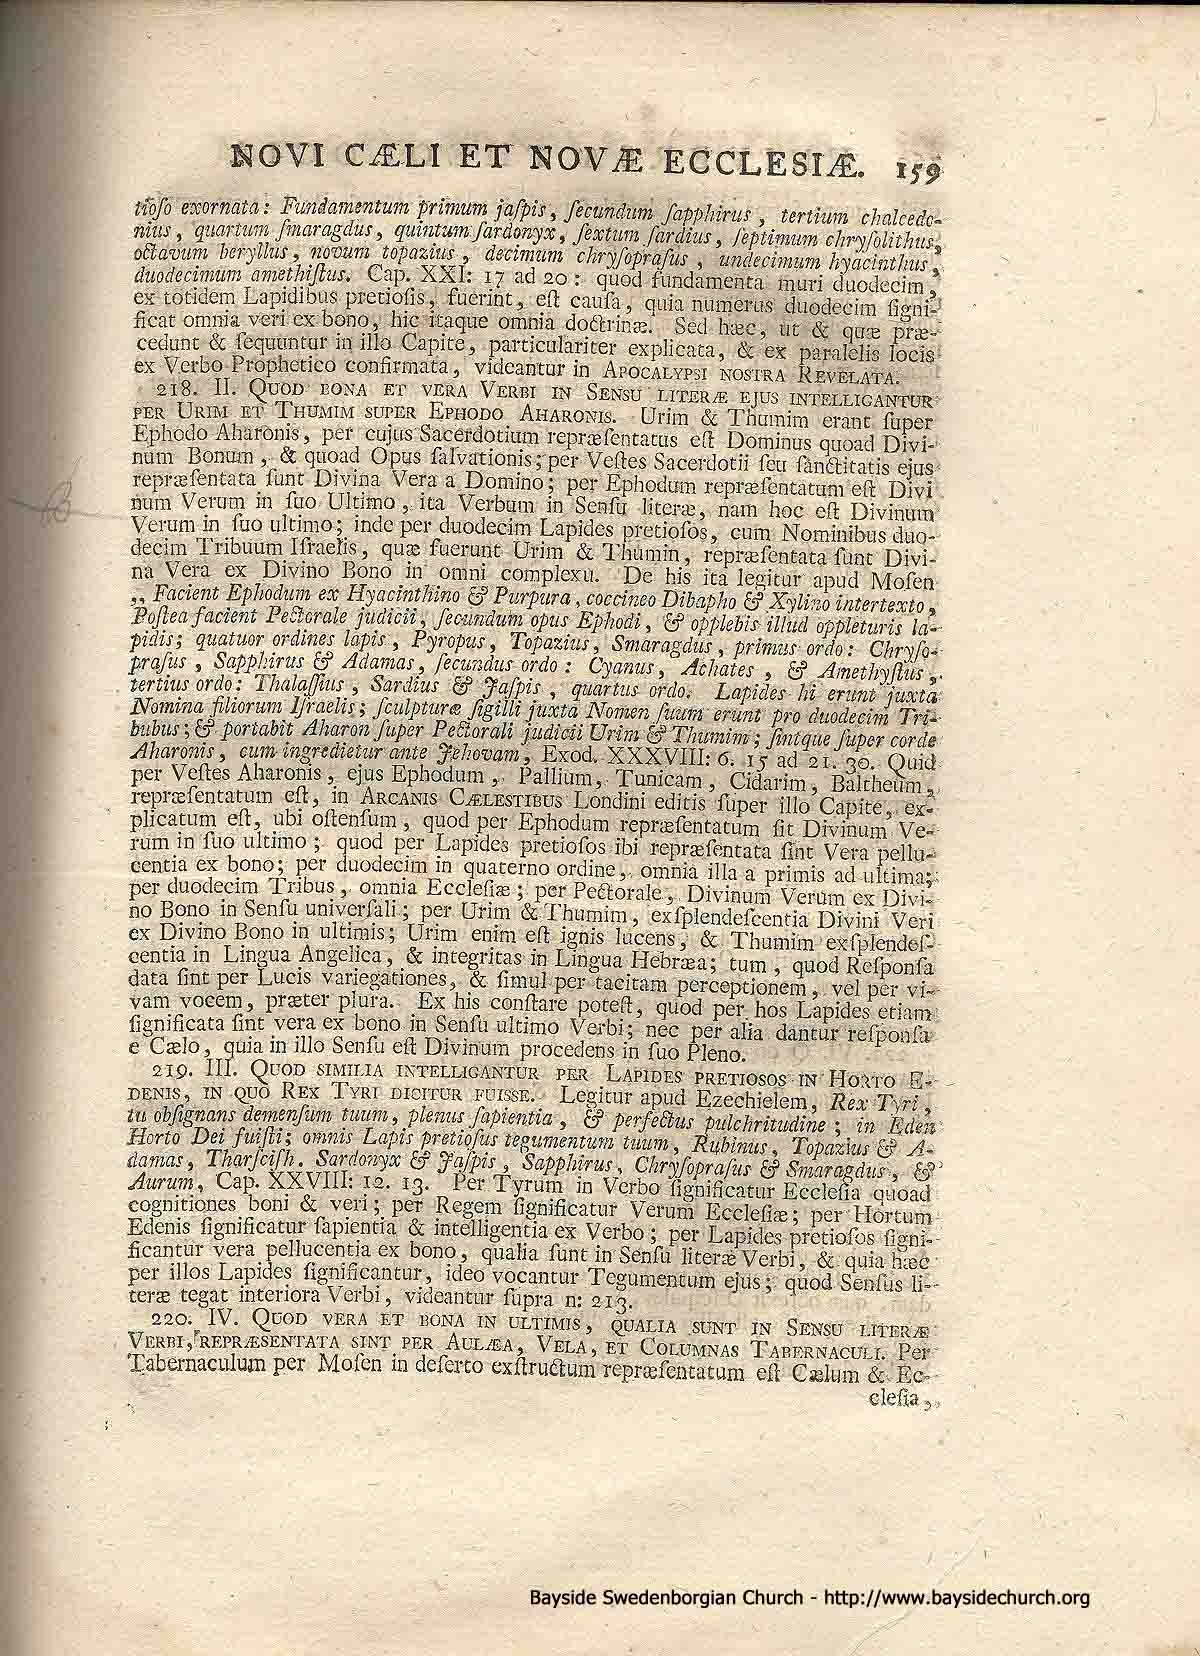 NOVI CÆLI ET NOVÆ ECCLESIÆ. 159
tioſo exornata: Fundamentum primum jaſpis, ſecundum ſapphirus, tertium chalcedo-
nius, quartum ſmaragdus, quintum ſardonyx, ſextum ſardius, ſeptimum chryſolithus,
octavum beryllus, novum topazius, decimum chryſopraſus, undecimum hyacinthus,
duodecimum amethiſtus. Cap. XXI: 17 ad 20: quod fundamenta muri duodecim,
ex totidem Lapidibus pretioſis, fuerint, eſt cauſa, quia numerus duodecim ſigni-
ficat omnia veri ex bono, hic itaque omnia doctrinæ. Sed hæc, ut & quæ præ-
cedunt & ſequuntur in illo Capite, particulariter explicata, & ex paralelis locis
ex Verbo Prophetico confirmata, videantur in APOCALYPSI NOSTRA REVELATA.
218. II. QUOD BONA ET VERA VERBI IN SENSU LITERÆ EJUS INTELLIGANTUR
PER URIM ET THUMIM SUPER EPHODO AHARONIS. Urim & Thumim erant ſuper
Ephodo Aharonis, per cujus Sacerdotium repræſentatus eſt Dominus quoad Divi-
num Bonum, & quoad Opus ſalvationis; per Veſtes Sacerdotii ſeu ſanctitatis ejus
repræſentata ſunt Divina Vera a Domino; per Ephodum repræſentatum eſt Divi
num Verum in ſuo Ultimo, ita Verbum in Senſu literæ, nam hoc eſt Divinum
Verum in ſuo ultimo; inde per duodecim Lapides pretioſos, cum Nominibus duo-
decim Tribuum Iſraelis, quæ fuerunt Urim & Thumin, repræſentata ſunt Divi-
na Vera ex Divino Bono in omni complexu. De his ita legitur apud Moſen
,, Facient Ephodum ex Hyacinthino & Purpura, coccineo Dibapho & Xylino intertexto,
Poſtea facient Pectorale judicii, ſecundum opus Ephodi, & opplebis illud oppleturis la-
pidis; quatuor ordines lapis, Pyropus, Topazius, Smaragdus, primus ordo: Chryſo-
praſus, Sapphirus & Adamas, ſecundus ordo: Cyanus, Achates, & Amethyſtus,
tertius ordo: Thalaſſius, Sardius & Jaſpis, quartus ordo. Lapides hi erunt juxta
Nomina filiorum Iſraelis; ſculpturæ ſigilli juxta Nomen ſuum erunt pro duodecim Tri-
bubus; & portabit Aharon ſuper Pectorali judicii Urim & Thumim; ſintque ſuper corde
Aharonis, cum ingredietur ante Jehovam, Exod. XXXVIII: 6. 15 ad 21. 30. Quid
per Veſtes Aharonis, ejus Ephodum, Pallium, Tunicam, Cidarim, Baltheum,
repræſentatum eſt, in ARCANIS CÆLESTIBUS Londini editis ſuper illo Capite, ex-
plicatum eſt, ubi oſtenſum, quod per Ephodum repræſentatum ſit Divinum Ve-
rum in ſuo ultimo; quod per Lapides pretioſos ibi repræſentata ſint Vera pellu-
centia ex bono; per duodecim in quaterno ordine, omnia illa a primis ad ultima;
per duodecim Tribus, omnia Eccleſiæ; per Pectorale, Divinum Verum ex Divi-
no Bono in Senſu univerſali; per Urim & Thumim, exſplendeſcentia Divini Veri
ex Divino Bono in ultimis; Urim enim eſt ignis lucens, & Thumim exſplendeſ-
centia in Lingua Angelica, & integritas in Lingua Hebræa; tum, quod Reſponſa
data ſint per Lucis variegationes, & ſimul per tacitam perceptionem, vel per vi-
vam vocem, præter plura. Ex his conſtare poteſt, quod per hos Lapides etiam
ſignificata ſint vera ex bono in Senſu ultimo Verbi; nec per alia dantur reſponſa
e Cælo, quia in illo Senſu eſt Divinum procedens in ſuo Pleno.
219. III. QUOD SIMILIA INTELLIGANTUR PER LAPIDES PRETIOSOS IN HORTO E-
DENIS, IN QUO REX TYRI DICITUR FUISSE. Legitur apud Ezechielem, Rex Tyri,
tu obſignans demenſum tuum, plenus ſapientia, & perfectus pulchritudine; in Eden
Horto Dei fuiſti; omnis Lapis pretioſus tegumentum tuum, Rubinus, Topazius & A-
damas, Tharſciſh. Sardonyx & Jaſpis, Sapphirus, Chryſopraſus & Smaragdus, &
Aurum, Cap. XXVIII: 12. 13. Per Tyrum in Verbo ſignificatur Eccleſia quoad
cognitiones boni & veri; per Regem ſignificatur Verum Eccleſiæ; per Hortum
Edenis ſignificatur ſapientia & intelligentia ex Verbo; per Lapides pretioſos ſigni-
ficantur vera pellucentia ex bono, qualia ſunt in Senſu literæ Verbi, & quia hæc
per illos Lapides ſignificantur, ideo vocantur Tegumentum ejus; quod Senſus li-
teræ tegat interiora Verbi, videantur ſupra n: 213.
220. IV. QUOD VERA ET BONA IN ULTIMIS, QUALIA SUNT IN SENSU LITERÆ
VERBI, REPRÆSENTATA SINT PER AULÆA, VELA, ET COLUMNAS TABERNACULI. Per
Tabernaculum per Moſen in deſerto exſtructum repræſentatum eſt Cælum & Ec-
cleſia,
Bayside Swedenborgian Church - http://www.baysidechurch.org